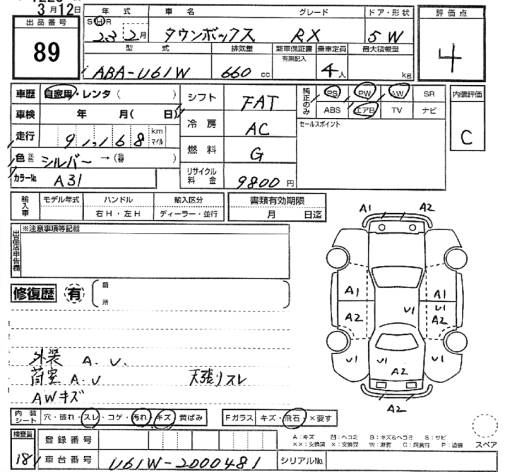 3月12日
出品番号
89
年式 車名 グレード ドア・形状
S H R 23 2月 タウンボックス RX 5W
型式 排気量 新車保証書 乗車定員 最大積載量
有無記入
ABA-U61W 660cc 4人 kg
評価点
4
車歴 自家用・レンタ( )
車検 年 月( 日)
走行 91,168 km マイル
色 シルバー→
カラーNo. A31
シフト FAT
冷房 AC
燃料 G
リサイクル料金 9800円
純正のみ PS PW AW SR
ABS エアB TV ナビ
セールスポイント
内装評価
C
輸入車 モデル年式 ハンドル 輸入区分
右H・左H ディーラー・並行
書類有効期限
月 日迄
※注意事項等記載
修復歴 有
箇所
外装 A.U.
荷室 A.U 天張リスレ
AWキズ
内装シート 穴・破れ・スレ・コゲ・汚れ・キズ・黄ばみ
Fガラス キズ・飛石・×要す
検査員
181
登録番号
車台番号 U61W-2000481 シリアルNo.
A1 A2
A1 A1
U1
A2 U1 A2
U1 U1
A2
A:キズ 凹:ヘコミ B:キズ&ヘコミ S:サビ
スペア